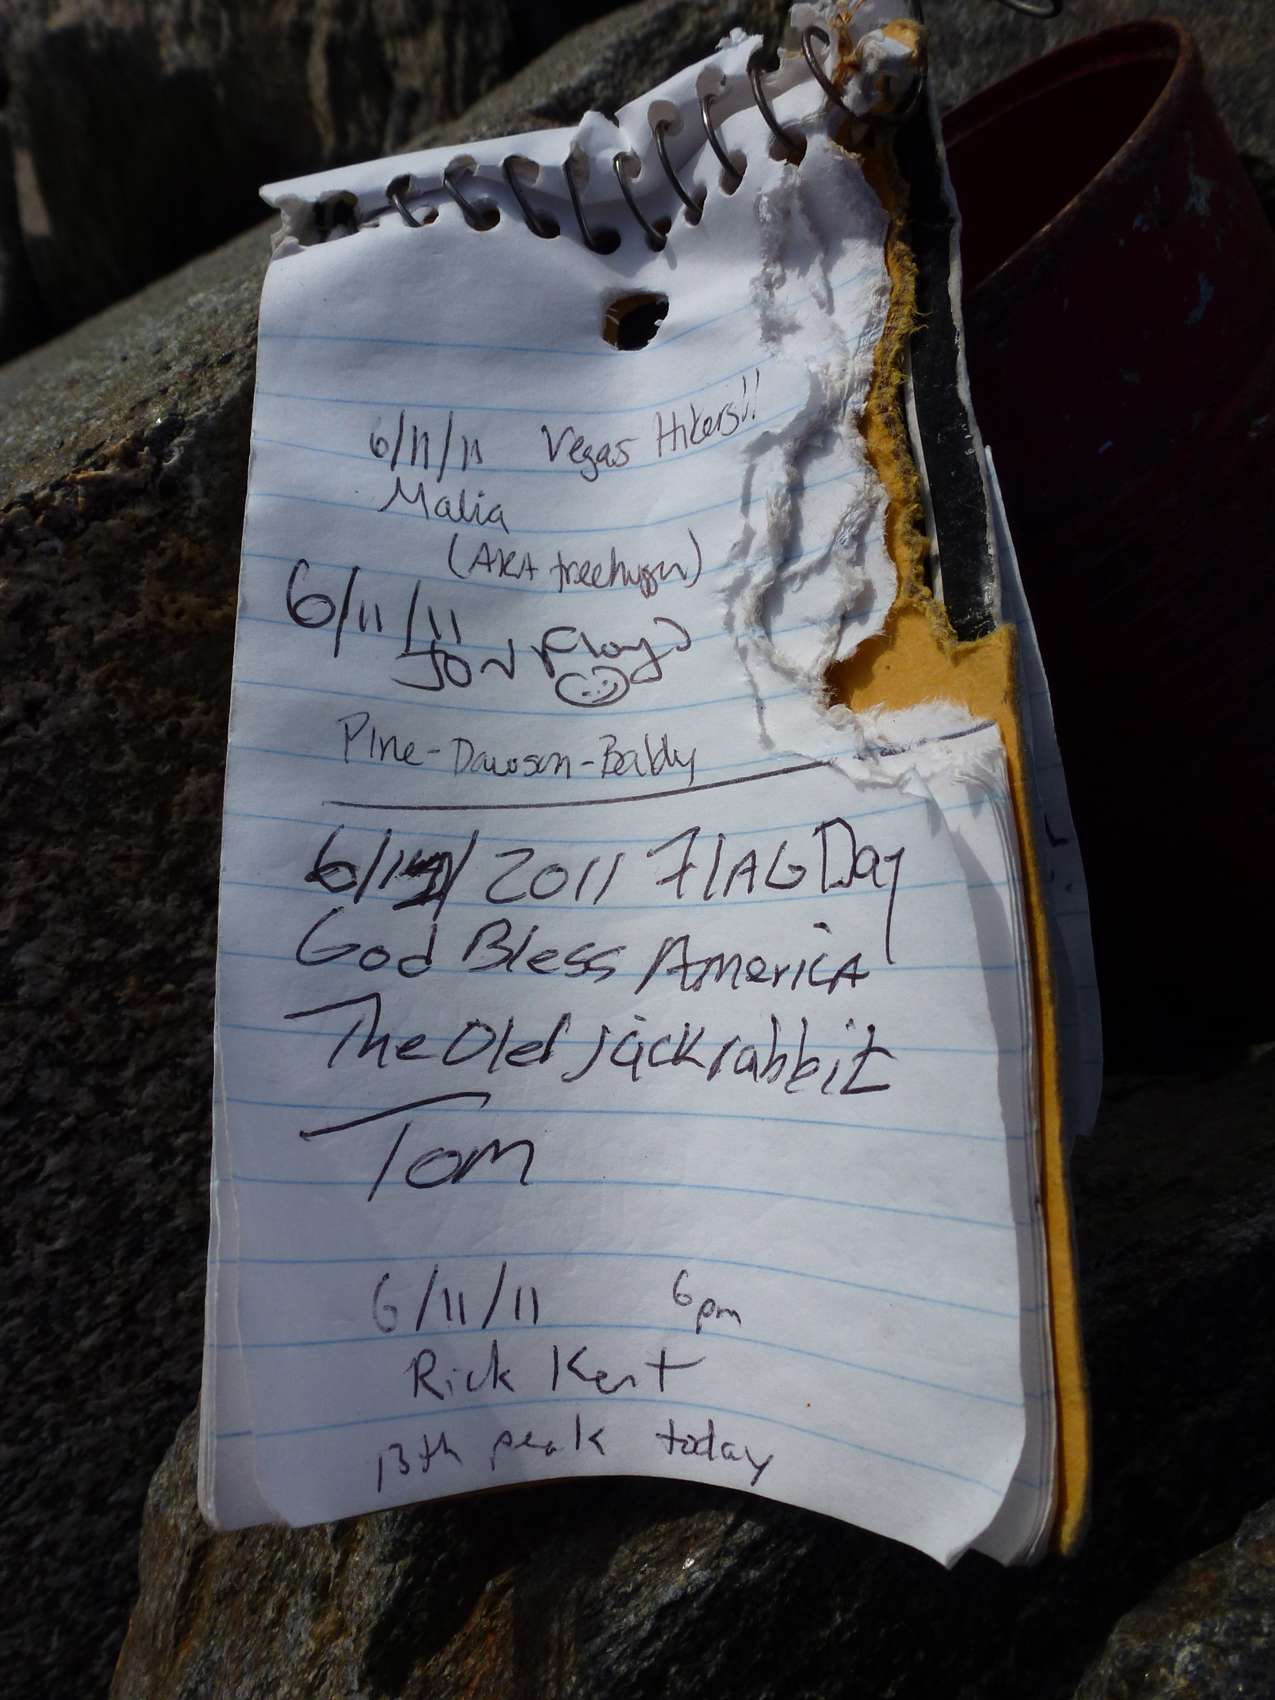 6/11/11 Vegas Hikers!!
Malia
(AKA treehugger)
6/11/11
JON Floyd
Pine-Dawson-Baldy
6/14/2011 FlAG Day
God Bless AmericA
The Old jackrabbit
Tom
6/11/11 6pm
Rick Kent
13th peak today